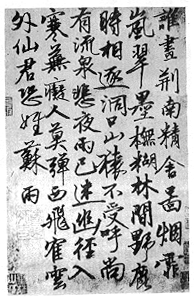 誰畫荊南精舍圖烟霏
嵐翠墨橅糊林間野鹿
時相逐洞口山猿不受呼尚
有流泉悲夜雨已迷進徑入
寒蕪癡人莫彈西飛隺雲
外仙君恐姓蘇 雨